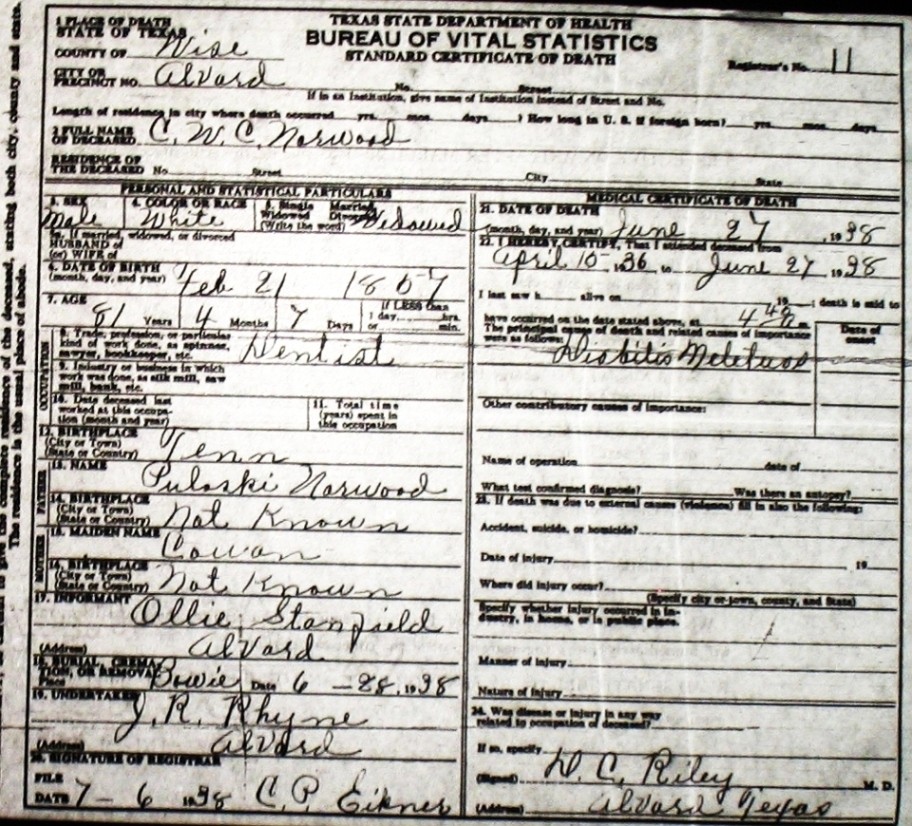 TEXAS STATE DEPARTMENT OF HEALTH
BUREAU OF VITAL STATISTICS
STANDARD CERTIFICATE OF DEATH
1 PLACE OF DEATH
STATE OF TEXAS
COUNTY OF Wise
Registrar's No. 11
CITY OR
PRECINCT NO. Alvard
No. Street
If in an Institution, give name of Institution instead of Street and No.
Length of residence in city where death occurred yrs. mos. days. ? How long in U. S. if foreign born? yrs. mos. days
2 FULL NAME
OF DECEASED C. W. C. Norwood
RESIDENCE OF
THE DECEASED No. Street City State
PERSONAL AND STATISTICAL PARTICULARS
3. SEX Male
4. COLOR OR RACE White
5. Single Married
Widowed Divorced
(Write the word) Widowed
5a. If married, widowed, or divorced
HUSBAND of
(or) WIFE of
6. DATE OF BIRTH
(month, day, and year) Feb 21 1857
7. AGE
81 Years 4 Months 7 Days
If LESS than
1 day, hrs.
or min.
OCCUPATION
8. Trade, profession, or particular
kind of work done, as spinner,
sawyer, bookkeeper, etc. Dentist
9. Industry or business in which
work was done, as silk mill, saw
mill, bank, etc.
10. Date deceased last
worked at this occupa-
tion (month and year)
11. Total time
(years) spent in
this occupation
12. BIRTHPLACE
(City or Town)
(State or Country) Tenn
FATHER
13. NAME
Pulaski Norwood
14. BIRTHPLACE
(City or Town)
(State or Country) Not Known
MOTHER
15. MAIDEN NAME
Cowan
16. BIRTHPLACE
(City or Town)
(State or Country) Not Known
17. INFORMANT
Ollie Stanfield
(Address) Alvard
18. BURIAL, CREMA-
TION, OR REMOVAL
Place Bowie Date 6 - 28, 1938
19. UNDERTAKER
J. R. Rhyne
(Address) Alvard
20. SIGNATURE OF REGISTRAR
FILE
DATE 7 - 6 1938 C. P. Eikner
MEDICAL CERTIFICATE OF DEATH
21. DATE OF DEATH
(month, day, and year) June 27, 1938
22. I HEREBY CERTIFY, That I attended deceased from
April 10- 1936 to June 27, 1938
I last saw h alive on 19 ; death is said to
have occurred on the date stated above, at 4 m.
The principal cause of death and related causes of importance
were as follows:
Date of
onset
Diobitis Meletuos
Other contributory causes of importance:
Name of operation date of
What test confirmed diagnosis? Was there an autopsy?
23. If death was due to external causes (violence) fill in also the following:
Accident, suicide, or homicide?
Date of injury 19
Where did injury occur?
(Specify city or town, county, and State)
Specify whether injury occurred in in-
dustry, in home, or in public place.
Manner of injury
Nature of injury
24. Was disease or injury in any way
related to occupation of deceased?
If so, specify
(Signed) D. C. Riley M. D.
(Address) Alvard Texas
the complete residence of the deceased, stating both city, county and state.
The residence is the usual place of abode.